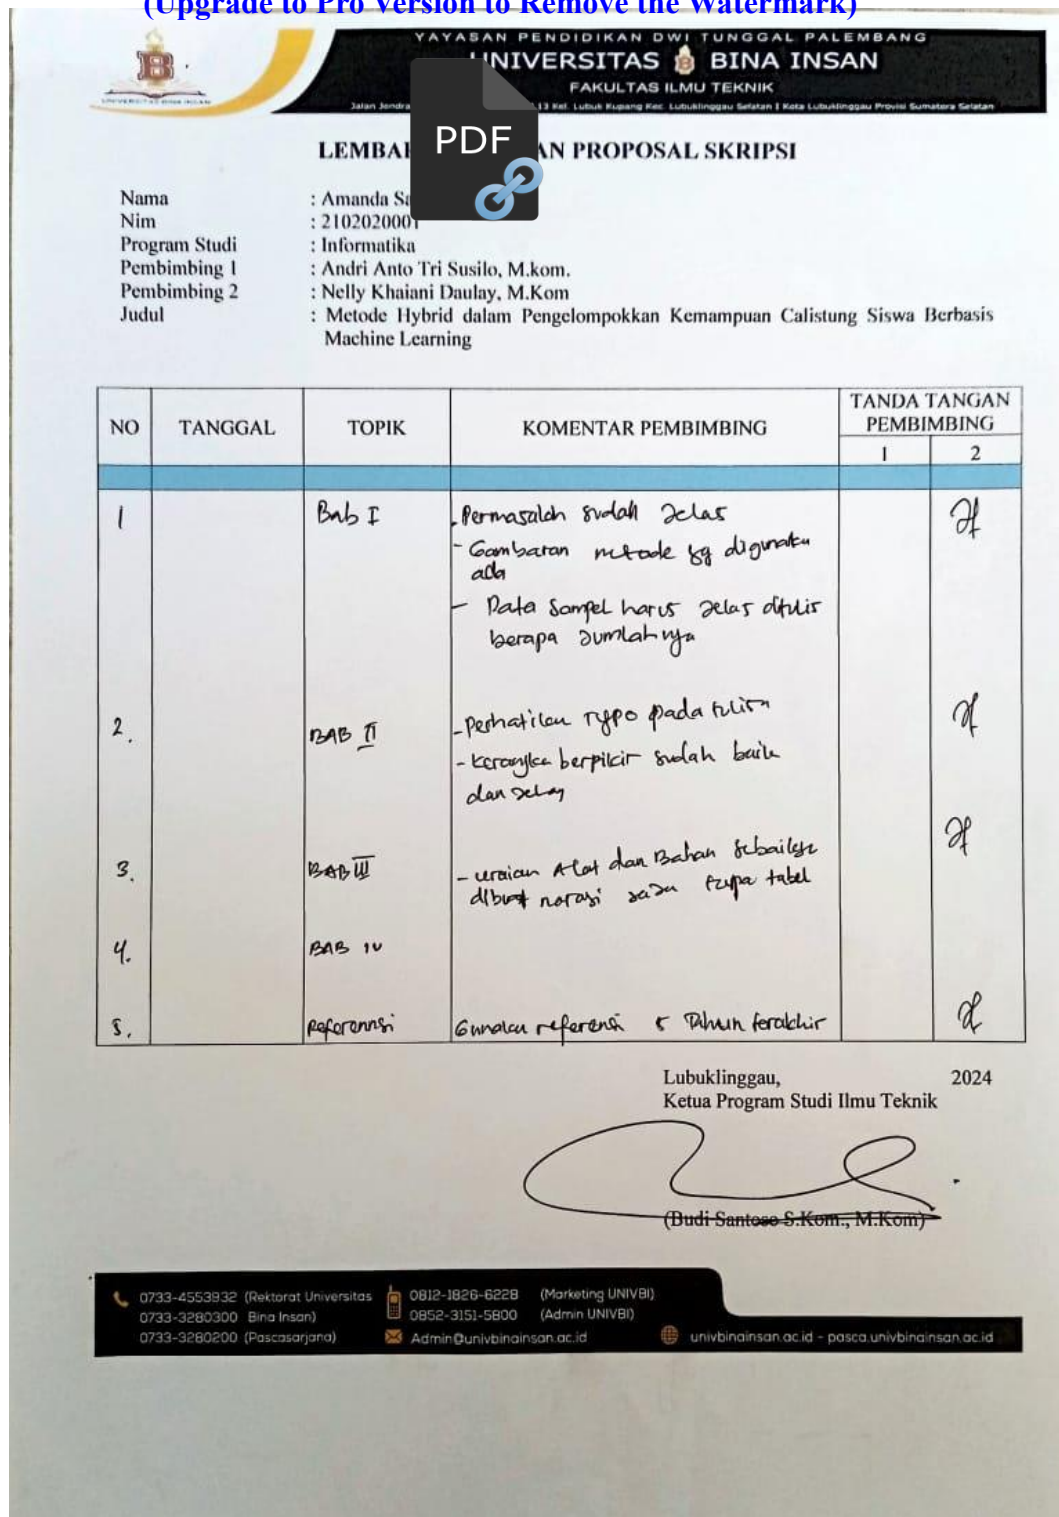 (Upgrade to Pro Version to Remove the Watermark)
YAYASAN PENDIDIKAN DWI TUNGGAL PALEMBANG
UNIVERSITAS BINA INSAN
FAKULTAS ILMU TEKNIK
Jalan Jendra 13 Kel. Lubuk Kupang Kec. Lubuklinggau Selatan I Kota Lubuklinggau Provisi Sumatera Selatan
UNIVERSITAS BINA INSAN
PDF
LEMBA AN PROPOSAL SKRIPSI
Nama : Amanda Sa
Nim : 2102020001
Program Studi : Informatika
Pembimbing 1 : Andri Anto Tri Susilo, M.kom.
Pembimbing 2 : Nelly Khaiani Daulay, M.Kom
Judul : Metode Hybrid dalam Pengelompokkan Kemampuan Calistung Siswa Berbasis
Machine Learning
NO TANGGAL TOPIK KOMENTAR PEMBIMBING TANDA TANGAN PEMBIMBING
1 2
1 Bab I - Permasalah sudah Jelas
- Gambaran metode yg digunakan
ada
- Data Sampel harus Jelas ditulis
berapa Jumlahnya
2. BAB II - Perhatikan Typo pada tulisn
- Kerangka berpikir sudah baik
dan Jelas
3. BAB III - uraian Alat dan Bahan sebaikny
dibuat narasi saja tnpa tabel
4. BAB IV
5. Referennsi Gunakan referensi 5 Tahun terakhir
Lubuklinggau, 2024
Ketua Program Studi Ilmu Teknik
(Budi Santoso S.Kom., M.Kom)
0733-4553932 (Rektorat Universitas 0812-1826-6228 (Marketing UNIVBI)
0733-3280300 Bina Insan) 0852-3151-5800 (Admin UNIVBI)
0733-3280200 (Pascasarjana) Admin@univbinainsan.ac.id univbinainsan.ac.id - pasca.univbinainsan.ac.id